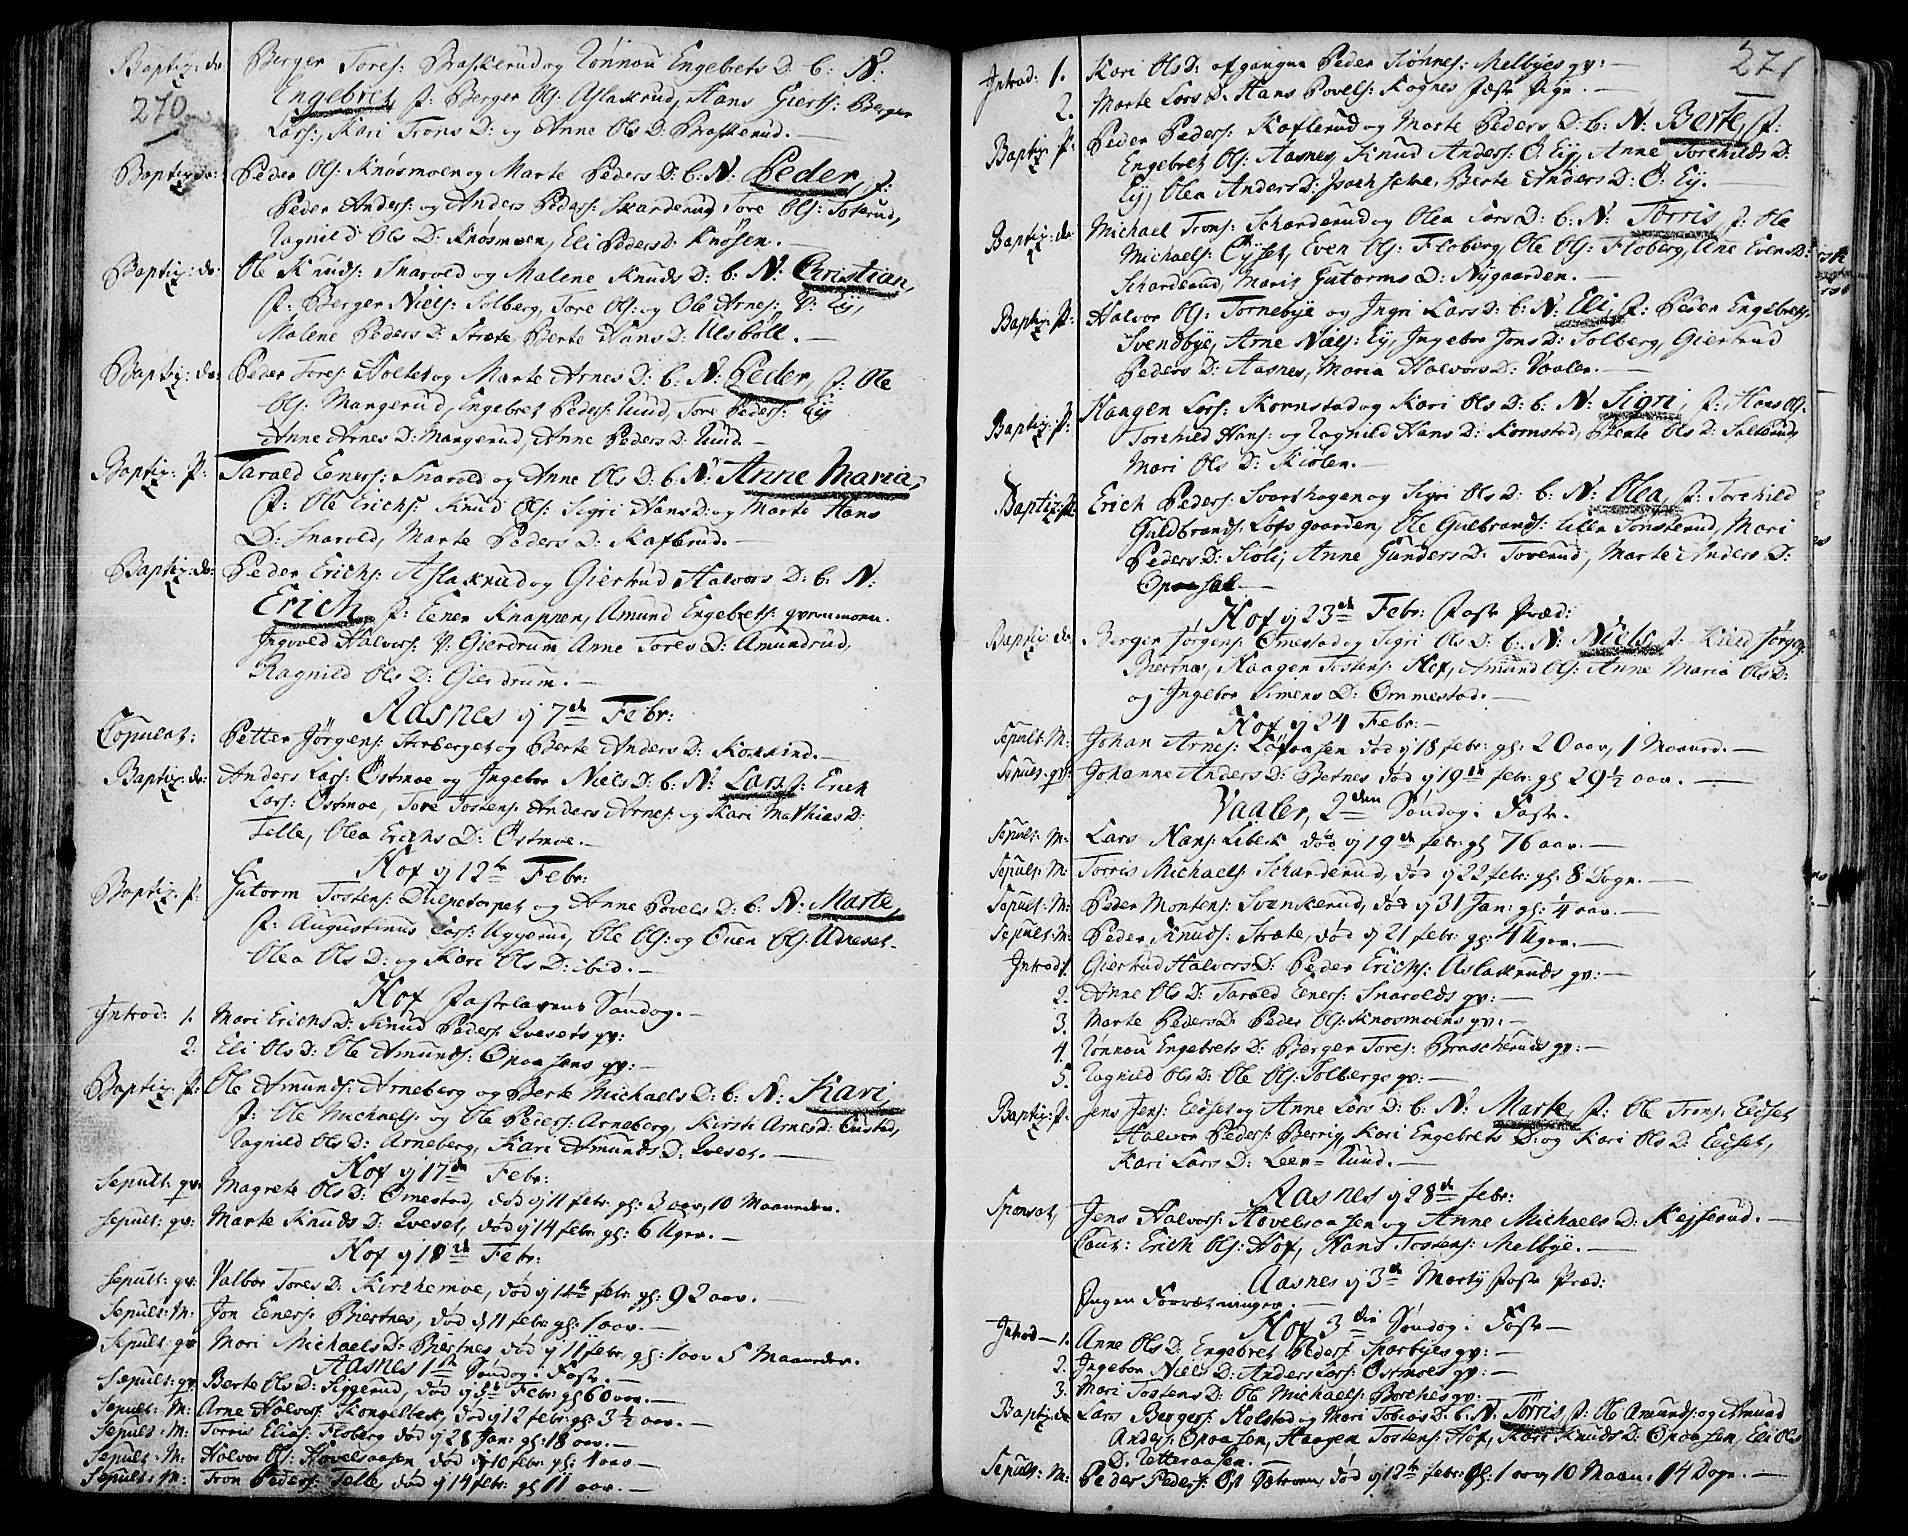 Baptiz: do Berger Tores: Braskerud og Rønnou Engebrets D: b: N:
270 Engebret, f: Berger Ols: Aslakrud, Hans Gierts: Berger
Lars:, Kari Trons D: og Anne Ols D: Braskerud.
Baptiz: do: Peder Ols: Knøsmoen og Marte Peders D: b: N: Peder, f:
Peder Anders: og Anders Peders: Skarderud Tore Ols: Soterud,
Ragnild Ols D: Knøsmoen, Eli Peders D: Knøsen.
Baptiz: do: Ole Knuds: Snarold og Malene Knuds D: b: N: Christian,
f: Berger Niels: Solberg, Tore Ols: og Ole Arnes: V: Eij,
Malene Peders D: Stræte, Berte Hans D: Ulsböll.
Baptiz: do: Peder Tores: Holtet og Marte Arnes D: b: N: Peder, f: Ole
Ols: Mangerud, Engebret Peders: Rund, Tore Peders: Eij
Anne Arnes D: Mangerud, Anne Peders D: Rund.
Baptiz: f: Tarald Eeners: Snarold og Anne Ols D: b: N: Anne Maria,
f: Ole Erichs: Knud Ols: Sigri Hans D: og Marte Hans
D: Snarold, Marte Peders D: Kaflerud.
Baptiz: do: Peder Erichs: Aslakrud og Giertrud Halvors D: b: N:
Erich, f: Eener Knappen, Amund Engebrets:
Ingvold Halvors: V: Gierdrum Anne Tores D: Amundrud,
Ragnild Ols D: Gierdrum.
Aasnes ij 7de Febr:
Copulat: Petter Jørgens: Storberget og Berte Anders D:
Baptiz: do: Anders Lars: Östmoe og Ingebor Niels D: b: N: Lars f: Erich
Lars: Östmoe, Tore Tostens: Anders Arnes: og Kari Mathias D:
Felle, Olea Erichs D: Östmoe.
Hof ij 12te Febr:
Baptiz: f: Gutorm Tostens: Dulpetorpet og Anne Povels D: b: N: Marte,
f: Augustinus Lars: Uggerud, Ole Ols: og Ouen Ols: Udneset
Olea Ols D: og Kari Ols D: ibid.
Hof Fastelavens Søndag.
Introd: 1. Mari Erichs D: Knud Peders: Qvesets gv:
2. Eli Ols D: Ole Amunds: Opaasens gv:
Baptiz: f: Ole Amunds: Arneberg og Berte Michaels D: b: N: Kari,
f: Ole Michaels: og Ole Peders: Arneberg, Kirsti Arnes D: Oustad,
Ragnild Ols D: Arneberg, Kari Amunds D: Qveset.
Hof ij 17de Febr:
Sepult: qv: Magrete Ols D: Ømestad, død ij 11 febr: gl: 3 aar, 10 Maaneder.
Sepult: qv: Marte Knuds D: Qveset, død ij 14 febr: gl: 6 Uger.
Hof ij 18de Febr:
Sepult: qv: Valbor Tores D: Kirchemoe, død ij 14te febr: gl: 92 aar.
Sepult: M: Jon Eeners: Biertnes, død ij 11 febr: gl: 1 aar.
Sepult: qv: Mari Michaels D: Biertnes død ij 11 febr, gl: 1 aar 5 Maaneder.
Aasnes 1ste Søndag i Faste.
Sepult: qv Berte Ols D: Siggerud, død ij 5te Febr: gl 60 aar.
Sepult: M: Arne Halvors: Kongeltrøe, død ij 12 febr: gl: 3½ aar.
Sepult: M: Torris Elias: Floberg død ij 28 Jan: gl: 18 aar.
Sepult: M: Halvor Ols: Hovelsaasen, død ij 10 febr: gl: 1 aar.
Sepult: M: Tron Peders: Felle, død ij 14 febr: gl 11 aar.
271
Introd: 1. Kari Ols D: afgangne Peder Melbyes gv:
2. Marte Lars D: Hans Povels: Kognes Fæste Pige.
Baptiz: f: Peder Peders: Kaflerud og Marte Peders D: b: N: Berte, f:
Engebret Ols: Aasnes, Knud Anders: Ö: Eij, Anne Torchilds D:
Eij, Olea Anders D: Berte Anders D: Ö: Eij.
Baptiz: do: Michael Trons: Scharderud og Olea Lars D: b: N: Torris, f: Ole
Michaels: Eijset, Even Ols: Floberg, Ole Ols: Floberg, Ane Evens D:
Scharderud, Maris Gutorms D: Nygaarden.
Baptiz: f: Halvor Ols: Tornebye og Ingri Lars D: b: N: Eli, f: Peder Engebrets:
Svendbye, Arne Niels: Eij, Ingebor Jons D: Solberg, Giertrud
Peders D: Aasnes, Maria Halvors D: Vaaler.
Baptiz: f: Haagen Lars: Kornstad og Kari Ols D: b: N: Sigri, f: Hans Ols:
Torchild Hans: og Ragnild Hans D: Kornstad, Berte Ols D: Salterud,
Mari Ols D: Kiølen.
Baptiz: f: Erich Peders: Svartshagen og Sigri Ols D: b: N: Olea, f: Torchild
Guldbrands: Løtsgaarden, Ole Gulbrands: Lille Sønsterud, Mari
Peders D: Skoli, Anne Gunders D: Toverud, Marte Anders D:
Opaasen.
Hof ij 23de Febr: Faste Præd:
Baptiz: do: Berger Jørgens: Ømestad og Sigri Ols D: b: N: Niels f: Kield Jørgens:
Biertnes, Haagen Tostens: Hof, Amund Ols: Anne Maria Ols D:
og Ingebor Simens D: Ommestad.
Hof ij 24 Febr:
Sepult: M: Johan Arnes: Löfaasen død ij 18 febr: gl: 20 aar, 1 Maaned.
Sepult: qv: Johanne Anders D: Bertnes død ij 19de febr: gl 29½ aar.
Vaaler, 2den Søndag i Faste.
Sepult: M: Lars Hans: Libek død ij 19de febr: gl 76 aar.
Sepult: M: Torris Michaels: Scharderud, død ij 22 febr: gl: 8 Dage.
Sepult: M: Peder Mortens: Svenkerud, død ij 31 Jan: gl: 4 aar.
Sepult: M: Peder Knuds: Stræte, død ij 21 febr: gl: 4 Uger.
Introd: 1. Giertrud Halvors D: Peder Erichs: Aslakruds gv:
2. Anne Ols D: Tarald Eeners: Snarolds gv:
3. Marte Peders D: Peder Ols: Knøsmoens gv:
4. Rønnou Engebrets D: Berger Tores: Bracheruds gv:
5. Ragnild Ols D: Ole Ols: Solbergs gv:
Baptiz: f: Jens Jens: Eedset og Anne Lars D: b: N: Marte, f: Ole Trons: Eedset
Halvor Peders: Berrig, Kari Engebrets D: og Kari Ols D: Eedset,
Kari Lars D: Leer-Rund.
Aasnes ij 28de febr:
Sponsat, Jens Halvors: Hovelsaasen og Anne Michaels D: Kejserud.
Caut: Erich Ols: Hof, Hans Tostens: Melbye.
Aasnes ij 3de Martij Faste Præd:
Ingen Forretninger.
Hof 3die Søndag i Faste
Introd 1. Anne Ols D: Engebret Peders: Sparbyes gv:
2. Ingebor Niels D: Anders Lars: Østmoes gv:
3. Mari Tostens D: Ole Michaels: Borches gv:
Baptiz: do Lars Bergers: Holstad og Mari Tobias D: b: N: Torris, f: Ole Amunds: og Amund
Anders: Opaasen, Haagen Tostens: Hof, Kari Knuds D: Opaasen, Eli Ols
D: Retteraasen.
Sepult: M: Peder Peders: død ij 12te febr: gl: 1 aar, 10 Maan: 14 Dage.